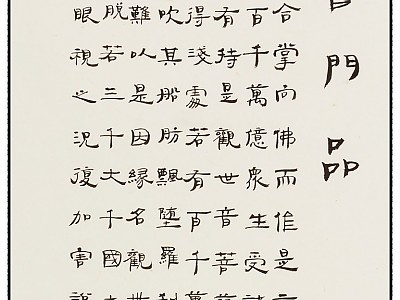 門品
合掌向佛而作是
百千萬億衆生受
有持是觀世音菩
得淺處若有百千萬
吹其船舫飄墮羅刹
難以是因緣名觀世
脫若三千大千國土
眼視之況復加害設